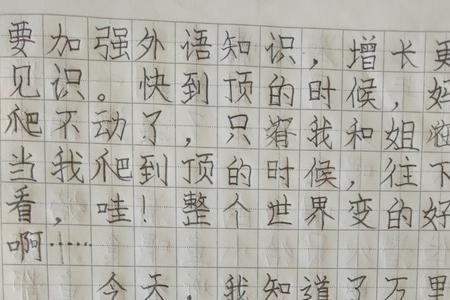 要加强外语知识，增长更
见识。快到顶的时候，妈
爬不动了，只有我和姐
当我爬到顶的时候，往下
看，哇！整个世界变的好
啊……
今天，我知道了万里